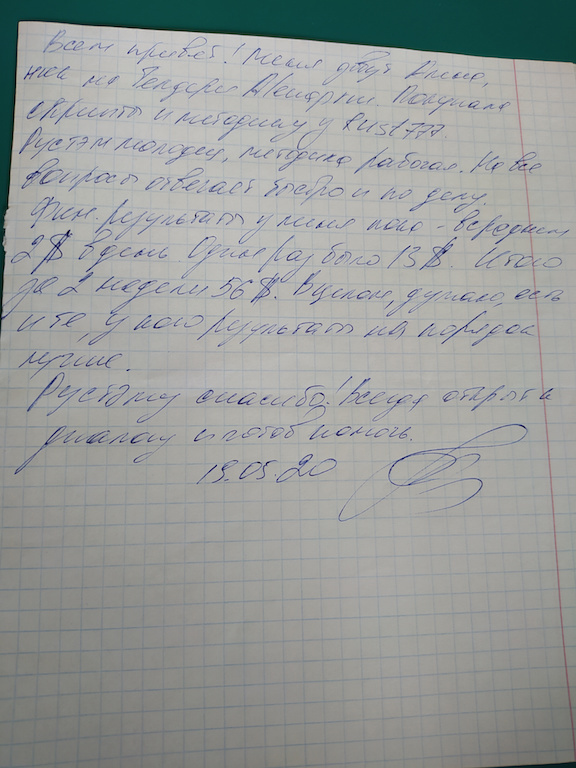 Всем привет! Меня зовут Анна,
ник на
скрипты и методику у Rust777.
Рустэм молодец, методика рабочая. На все
вопросы отвечает быстро и по делу.
Фин. результаты у меня пока - в среднем
2$ в день. Один раз было 13$. Итого
за 2 недели 56$. В целом, думаю, есть
и те, у кого результаты на порядок
лучше.
Рустэму спасибо! Всегда открыт к
диалогу и готов помочь.
19.05.20